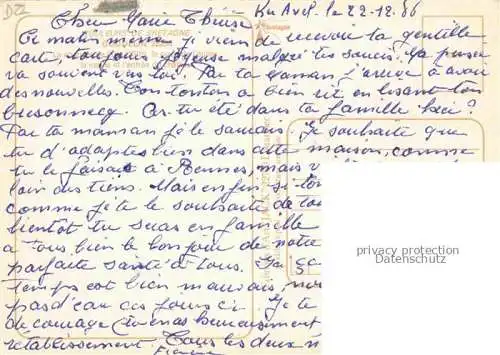 Chère Marie Thérèse Ker Avel. le 22-12-86
Ce matin même je viens de recevoir ta gentille
carte, toujours joyeuse malgré tes soucis. Ma pensée
va souvent vers toi. Par ta maman j'arrive à avoir
des nouvelles. Ton tonton a bien rit en lisant ton
As-tu été dans ta famille ici?
Par ta maman je le saurais. Je souhaite que
tu t'adaptes bien dans cette maison, comme
tu le faisait à Rennes, mais
loin des tiens. Mais enfin si
comme je te le souhaite de
bientôt tu seras en famille
à tous bien le bonjour de notre
parfaite santé à tous.
temps est bien mauvais,
pas d'eau ces jours ci. Je te
de courage (tu en as heureusement
rétablissement. Tous les deux
privacy protection
Datenschutz